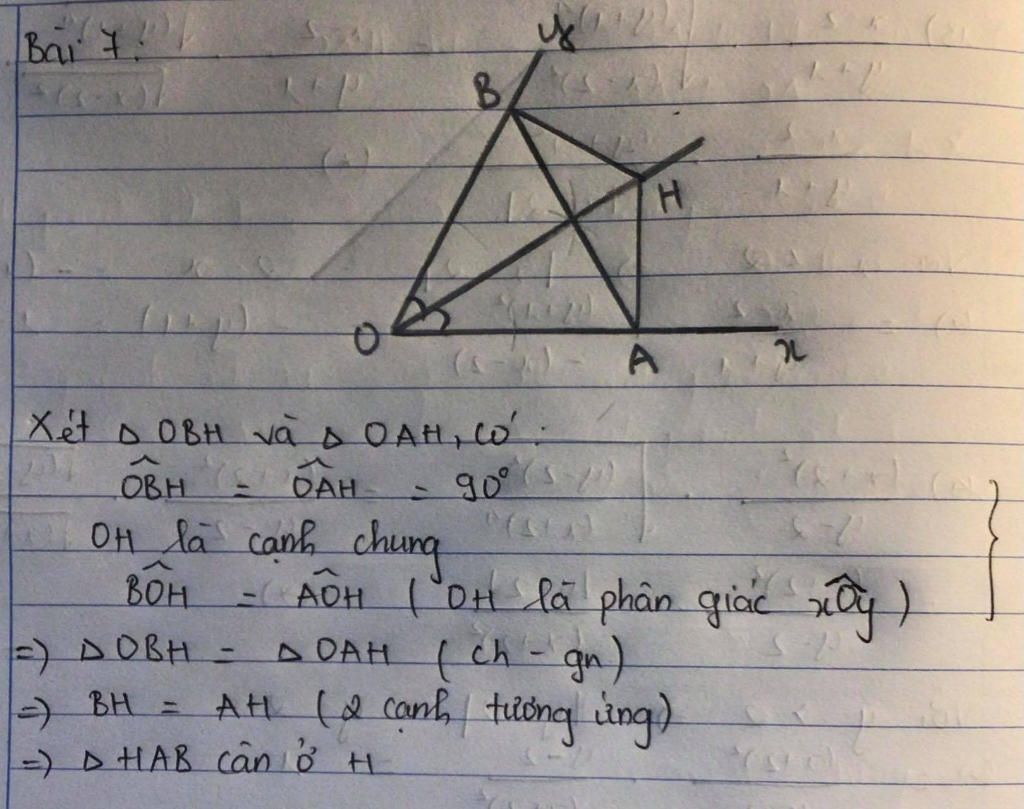 Bài 7:
y
B
H
O
A
x
Xét Δ OBH và Δ OAH, có:
OB̂H = OÂH = 90°
OH là cạnh chung
BÔH = AÔH ( OH là phân giác xÔy )
=) Δ OBH = Δ OAH ( ch - gn )
=) BH = AH ( 2 cạnh tương ứng )
=) Δ HAB cân ở H